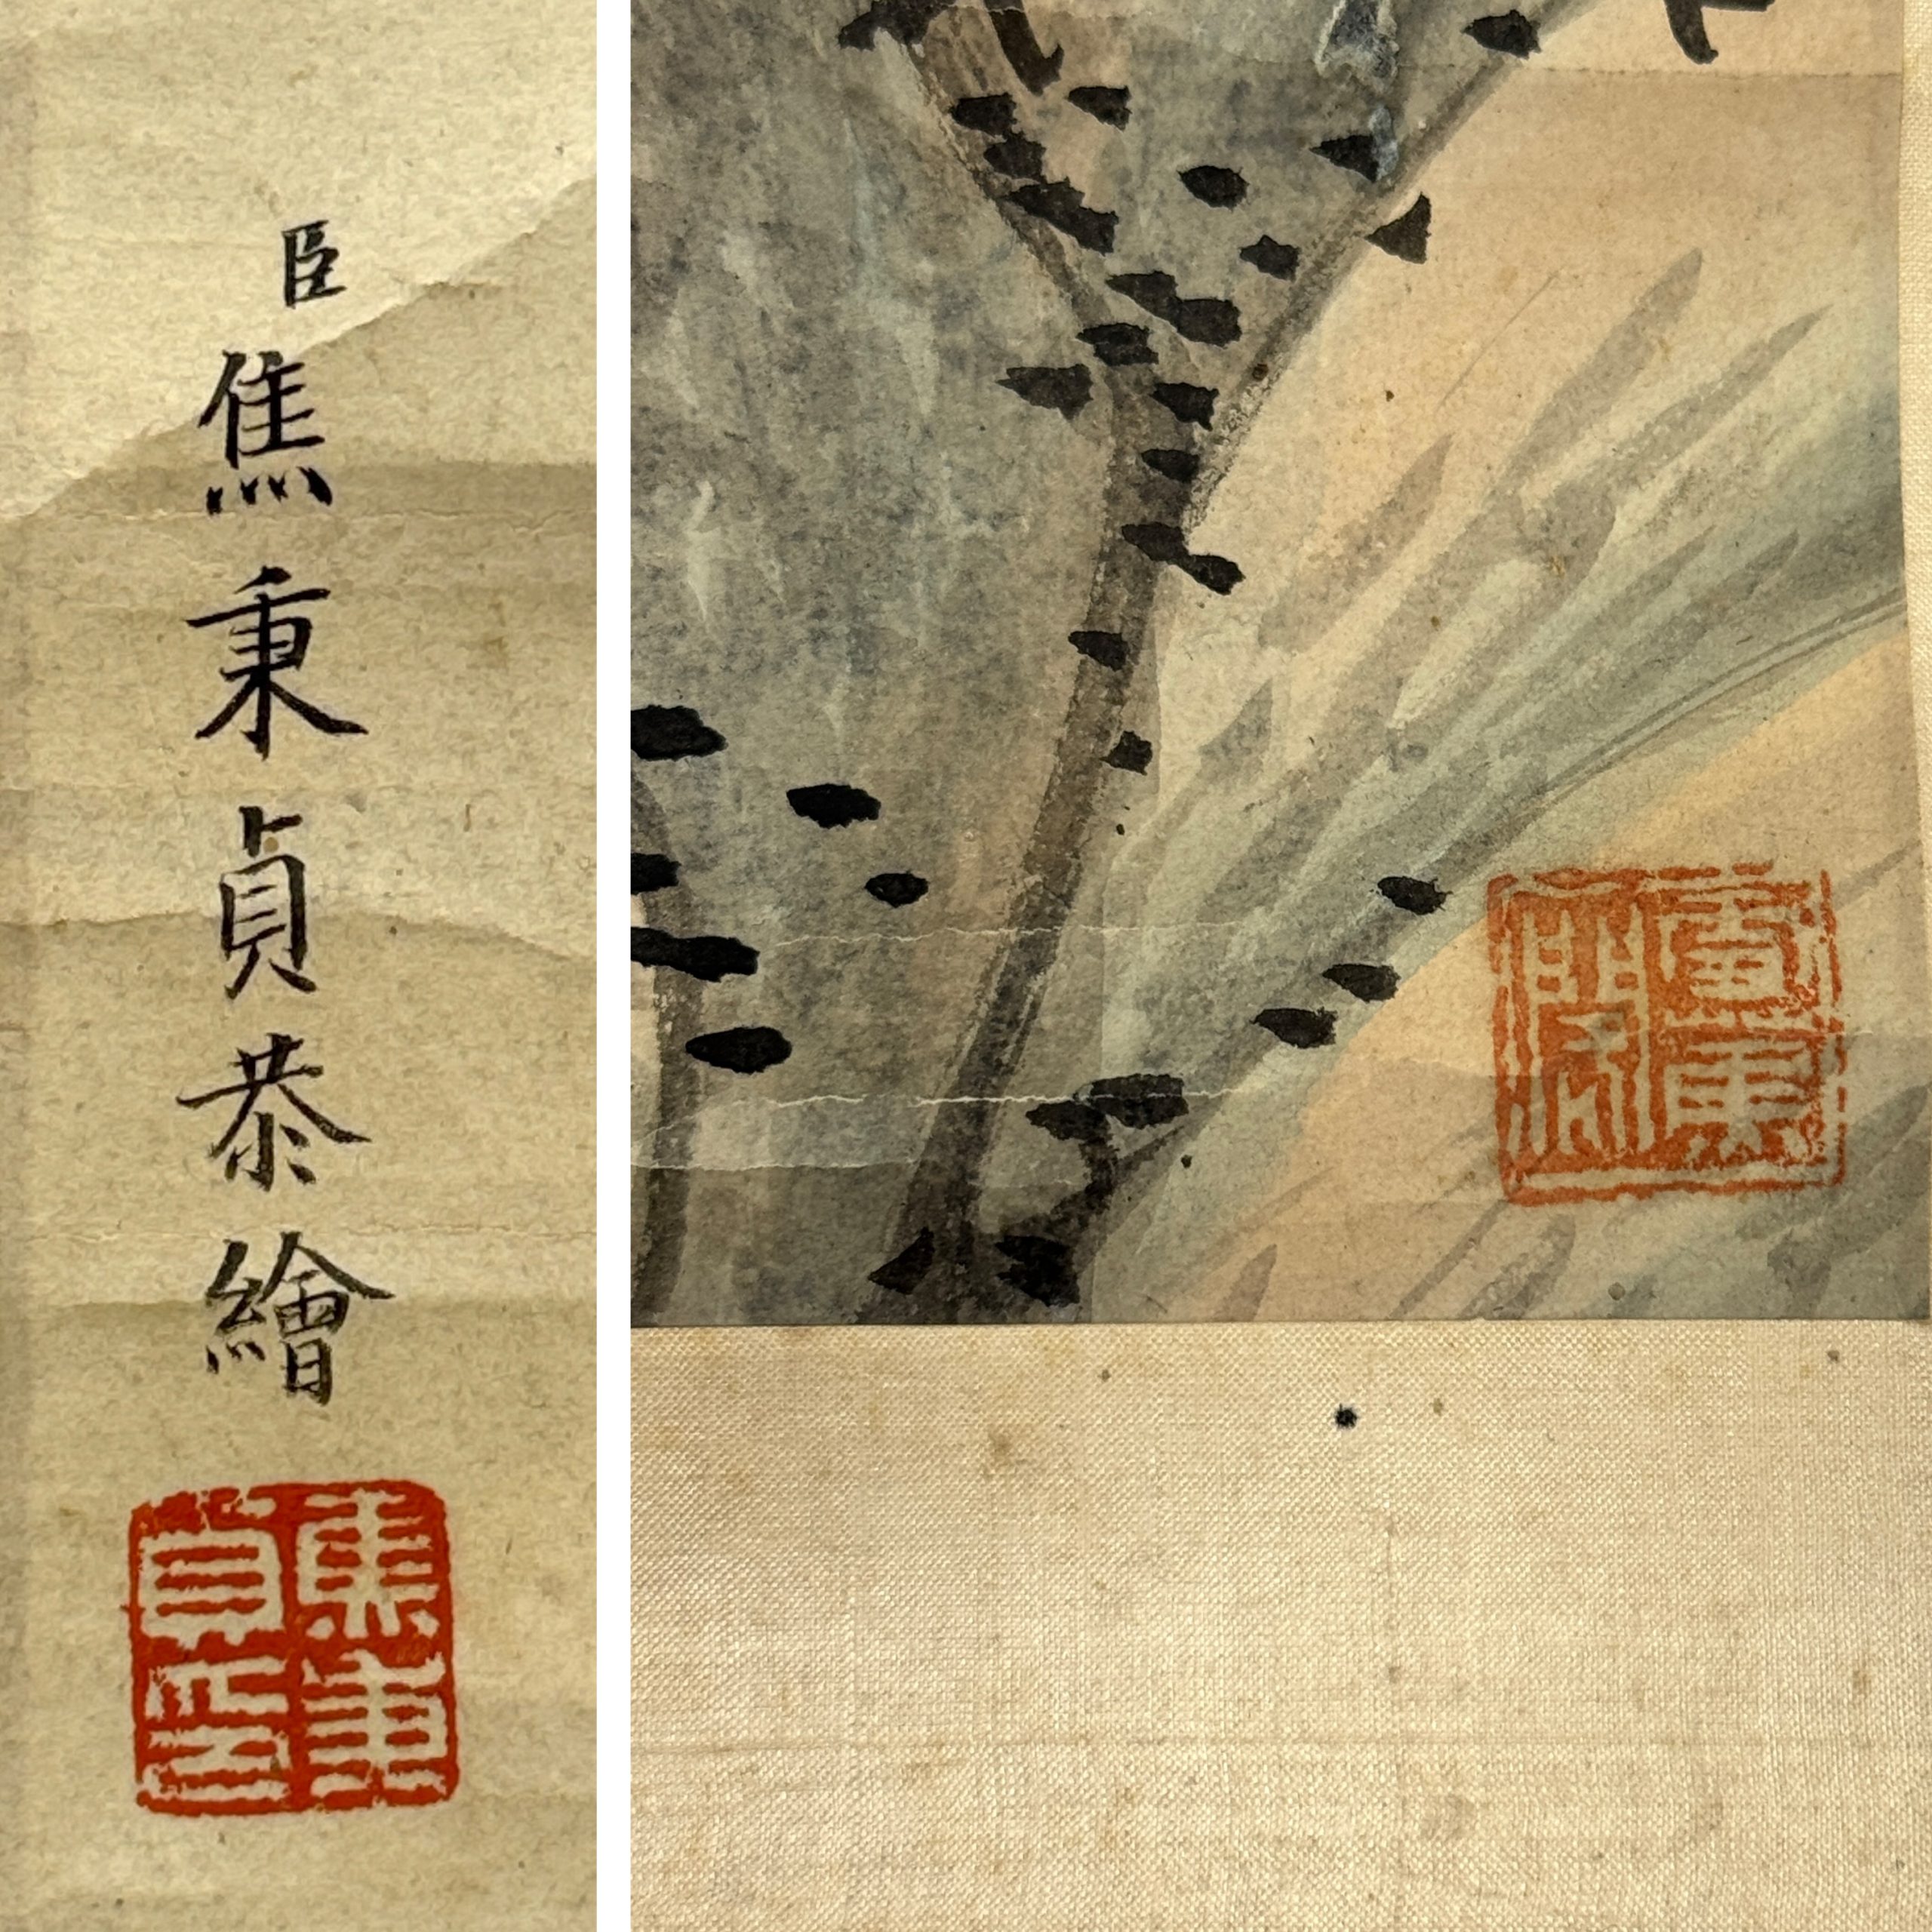 臣焦秉貞恭繪
焦秉
貞印